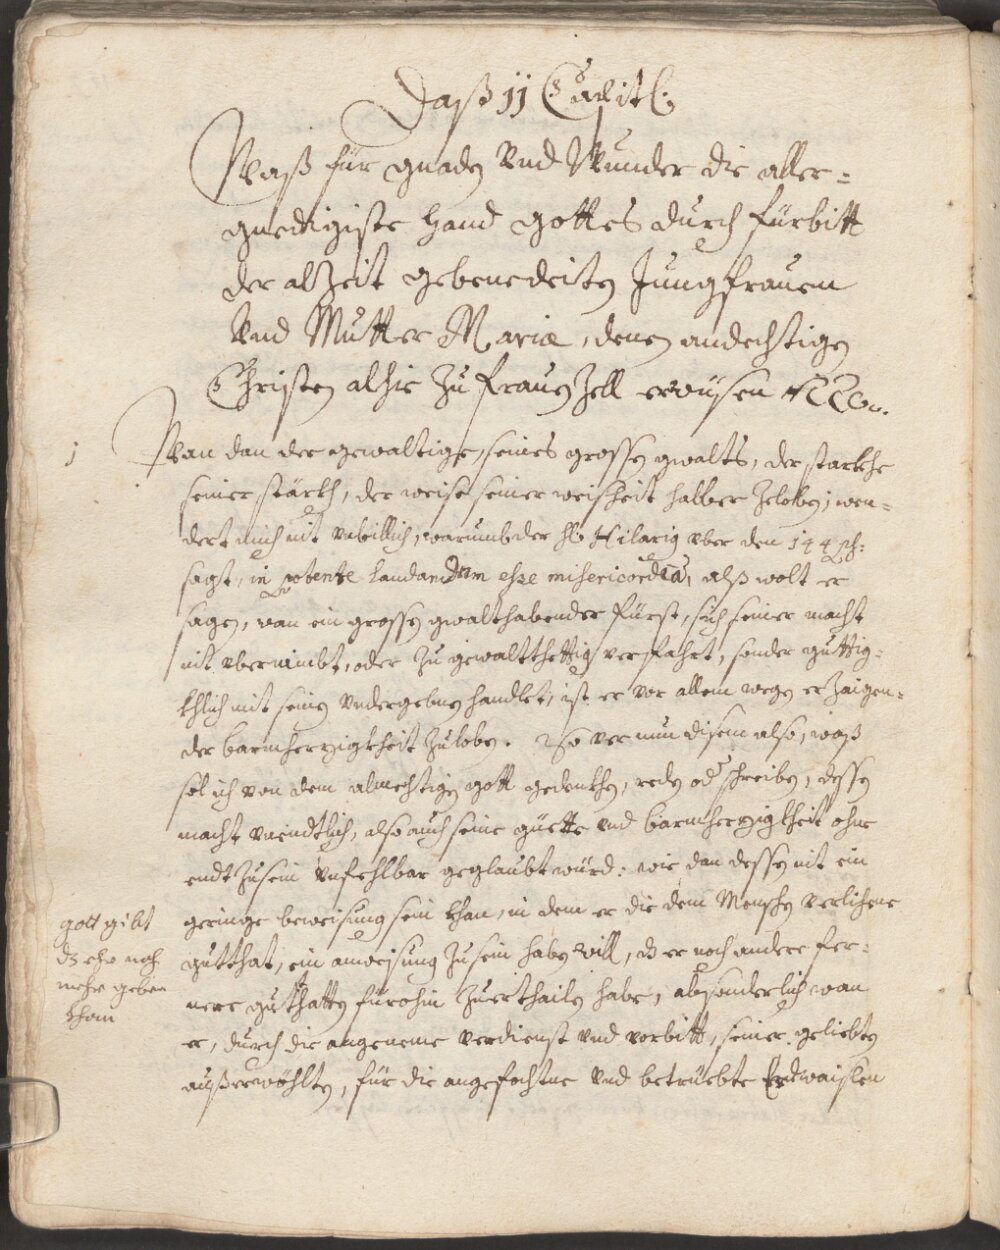 Daß jj Capitl:
Waß für gnaden Vnd Wunder die aller=
gnedigiste Hand gottes durch fürbitt
der alZeit gebenedeiten Jungfrauen
Vnd Mutter Mariæ, denen andechtigen
Christen alhie Zu frauenZell erwÿsen
j Wan dan der gewaltige, seines grossen gwalts, der starkhe
seiner stärkh, der weise seiner weisheit halber Zeloben; wun=
dert mich nit vnbillich, warumb der hl: Hilarig vber den 144 ps:
sagt, in potente laudandum esse misericordia, alß wolt er
sagen, wan ein grosser gwalthabender fürst, sich seiner macht
nit vbernimbt, oder Zu gewaltthettig verfahrt, sonder guttig=
khlich mit seinen vndergebnen handlet, ist er vor allem wegen erZaigen=
der barmherzigkheit Zuloben. So ver nun disem also, waß
sol ich von dem almechtigen gott gedenkhen, reden od schreiben, dessen
macht vnendtlich, also auch seine güette vnd barmherzigkheit ohne
endt Zusein vnfehlbar geglaubt würd: wie dan dessen nit ein
geringe beweisung sein khan, in dem er die dem Menschen verlihene
gutthat, ein anweisung Zusein haben will, ds er noch andere fer=
nere gutthatten fürohin Zuerthailen habe, absonderlich wan
er, durch die angeneme verdienst vnd vorbitt, seiner geliebten
außerwöhlten, für die angefochtne vnd betrüebte
gott gibt
ds ehr noch
mehr geben
khan